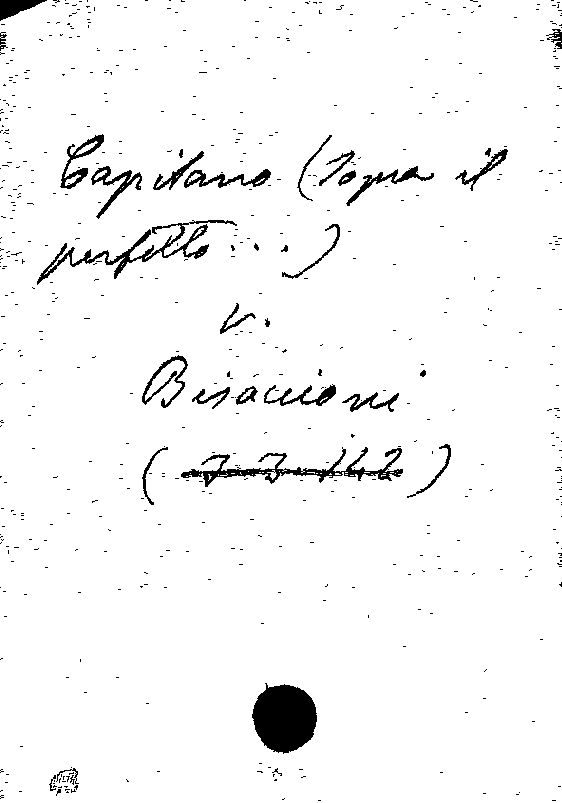 Capitano (Sopra il
perfetto...)
v.
Bisaccioni
( 7 3 142 )